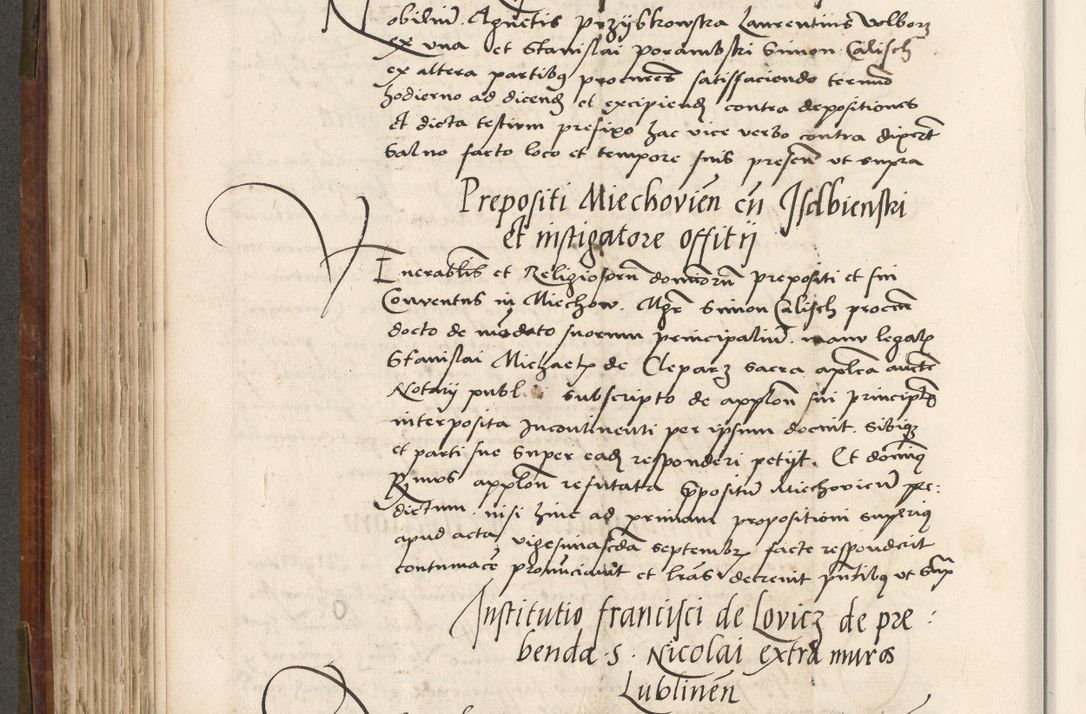 Nobiliu͂. Agnetis przijbkowska Laurentius Wolborz
ex una et Stanislai porambski Simon Calisch
ex altera partibus procures satisfaciendo termo
hodierno ad dicend et excipiend contra depositiones
et dicta testium prefixo hac vice verbo contra dixert
Salvo facto loco et tempore suis presen ut supra
Prepositi Miechovien͂ cu͂ Isdbienski
et instigatore offitij
Venerablis et Religiosoru͂ dominoru͂ prepositi et sui
Conventus in Miechow. Mgr Simon Calisch procur
docto de mandato suorum principaliu͂. manu legalr
Stanislai Michaelr de Clepar͂z sacra aplica aucte
Notarij publ. subscripto de applon͂ sui principlis
interposita Incontinenti per ipsum docuit. Sibique
et parti sue super ead responderi petijt. Et dominus
Rmus applon͂ refutata prepositu͂ Miechovien͂ pre:
dictum. nisi hinc ad primam propositioni superius
apud acta vigesimascda septembr facte responderit
contumace pronunciavit et lras decrevit pntibus ut sup
Institutio francisci de Lovicz de pre:
benda S. Nicolai extra muros
Lublinen͂